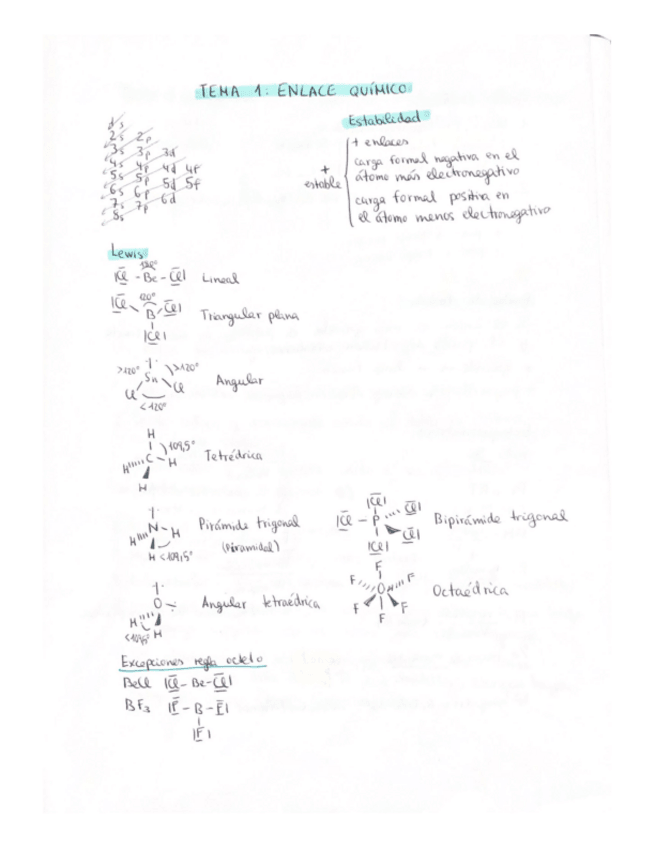 TEMA 1: ENLACE QUÍMICO
1s
2s 2p
3s 3p 3d
4s 4p 4d 4f
5s 5p 5d 5f
6s 6p 6d
7s 7p
8s
Estabilidad
+ estable
+ enlaces
carga formal negativa en el
átomo más electronegativo
carga formal positiva en
el átomo menos electronegativo
Lewis
180°
|Cl - Be - Cl| Lineal
|Cl 120° Cl|
B Triangular plana
|Cl|
>120° >120°
Sn
Cl Cl Angular
<120°
H
109,5°
C Tetrédrica
H H
H
N H Pirámide trigonal
H (piramidal)
H <109,5°
O Angular tetraédrica
H
<109,5° H
|Cl|
|Cl - P Cl| Bipirámide trigonal
Cl|
|Cl|
F
F F
Octaédrica
F F
F
Excepciones regla octeto
BeCl |Cl - Be - Cl|
BF3 |F - B - F|
|F|